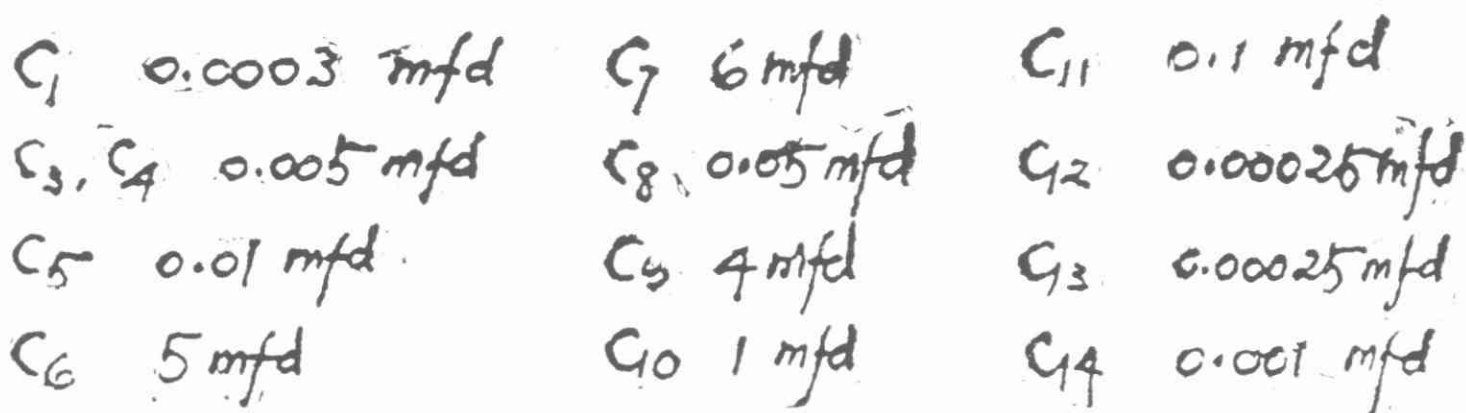 C₁ 0.0003 mfd
C₃, C₄ 0.005 mfd
C₅ 0.01 mfd
C₆ 5 mfd
C₇ 6 mfd
C₈ 0.05 mfd
C₉ 4 mfd
C₁₀ 1 mfd
C₁₁ 0.1 mfd
C₁₂ 0.00025 mfd
C₁₃ 0.00025 mfd
C₁₄ 0.001 mfd